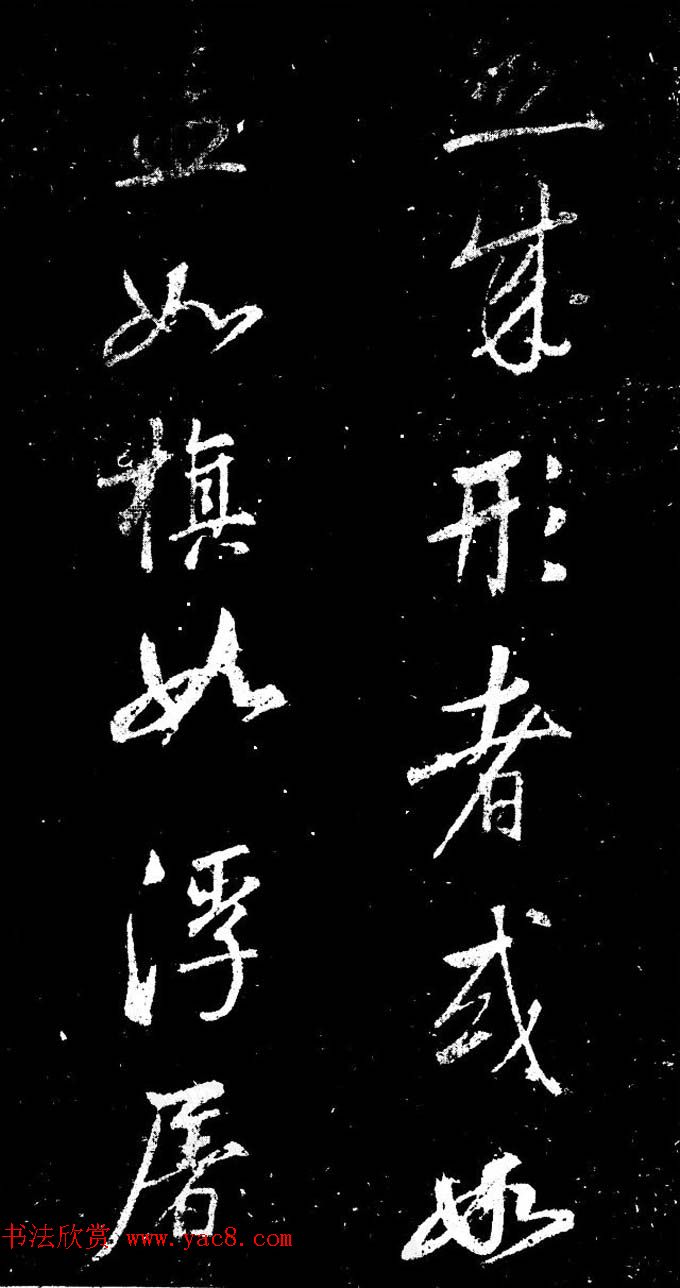 成形者或如
如槙如浮屠
书法欣赏 www.yac8.com